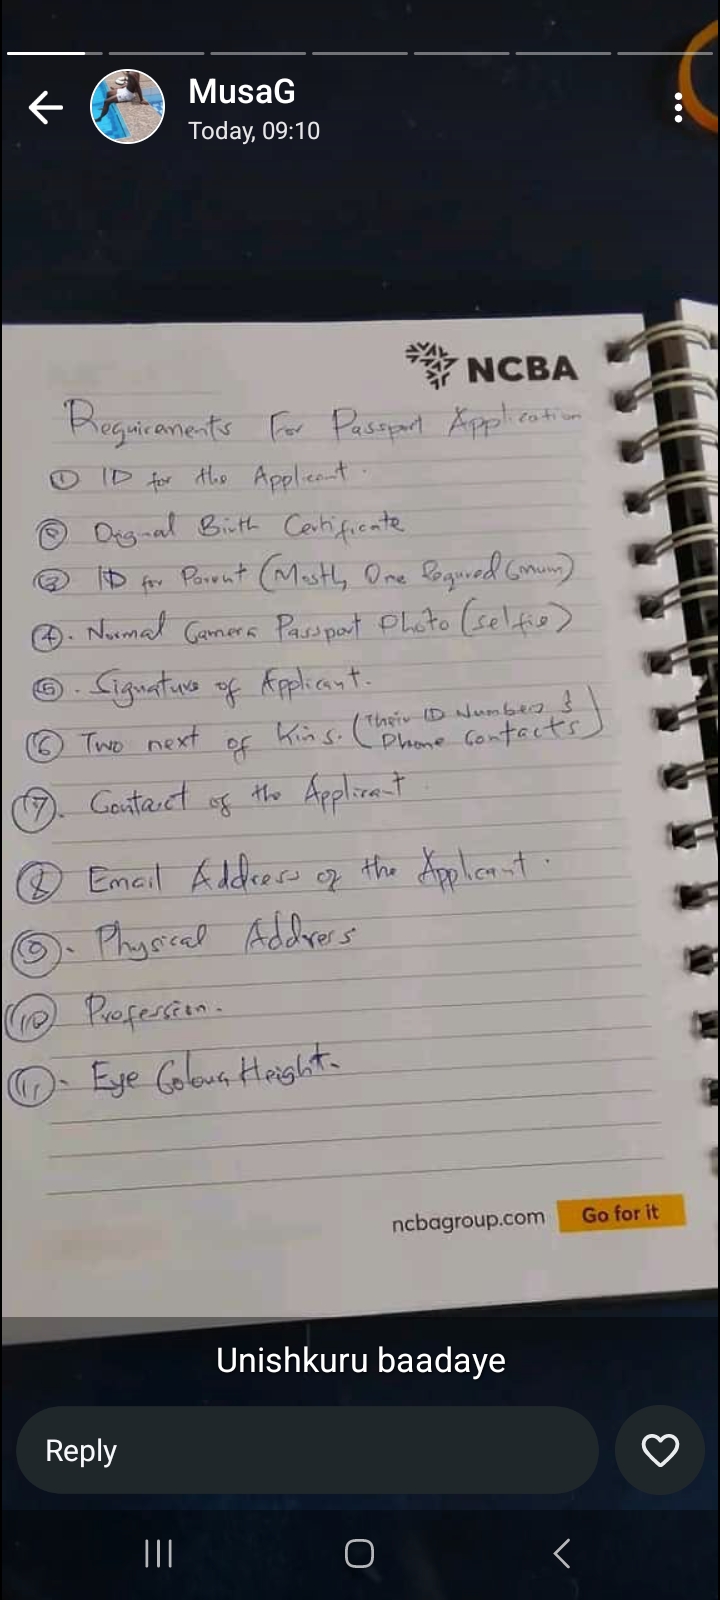 MusaG
Today, 09:10
NCBA
Requirements For Passport Application
① ID for the Applicant.
② Original Birth Certificate
③ ID for Parent (Mostly One Required (mum)
④. Normal Camera Passport Photo (selfie)
⑤. Signature of Applicant.
⑥ Two next of Kins. (Their ID Numbers & Phone Contacts)
⑦. Contact of the Applicant
⑧ Email Address of the Applicant.
⑨. Physical Address
⑩ Profession.
⑪. Eye Colour Height.
ncbagroup.com Go for it
Unishkuru baadaye
Reply